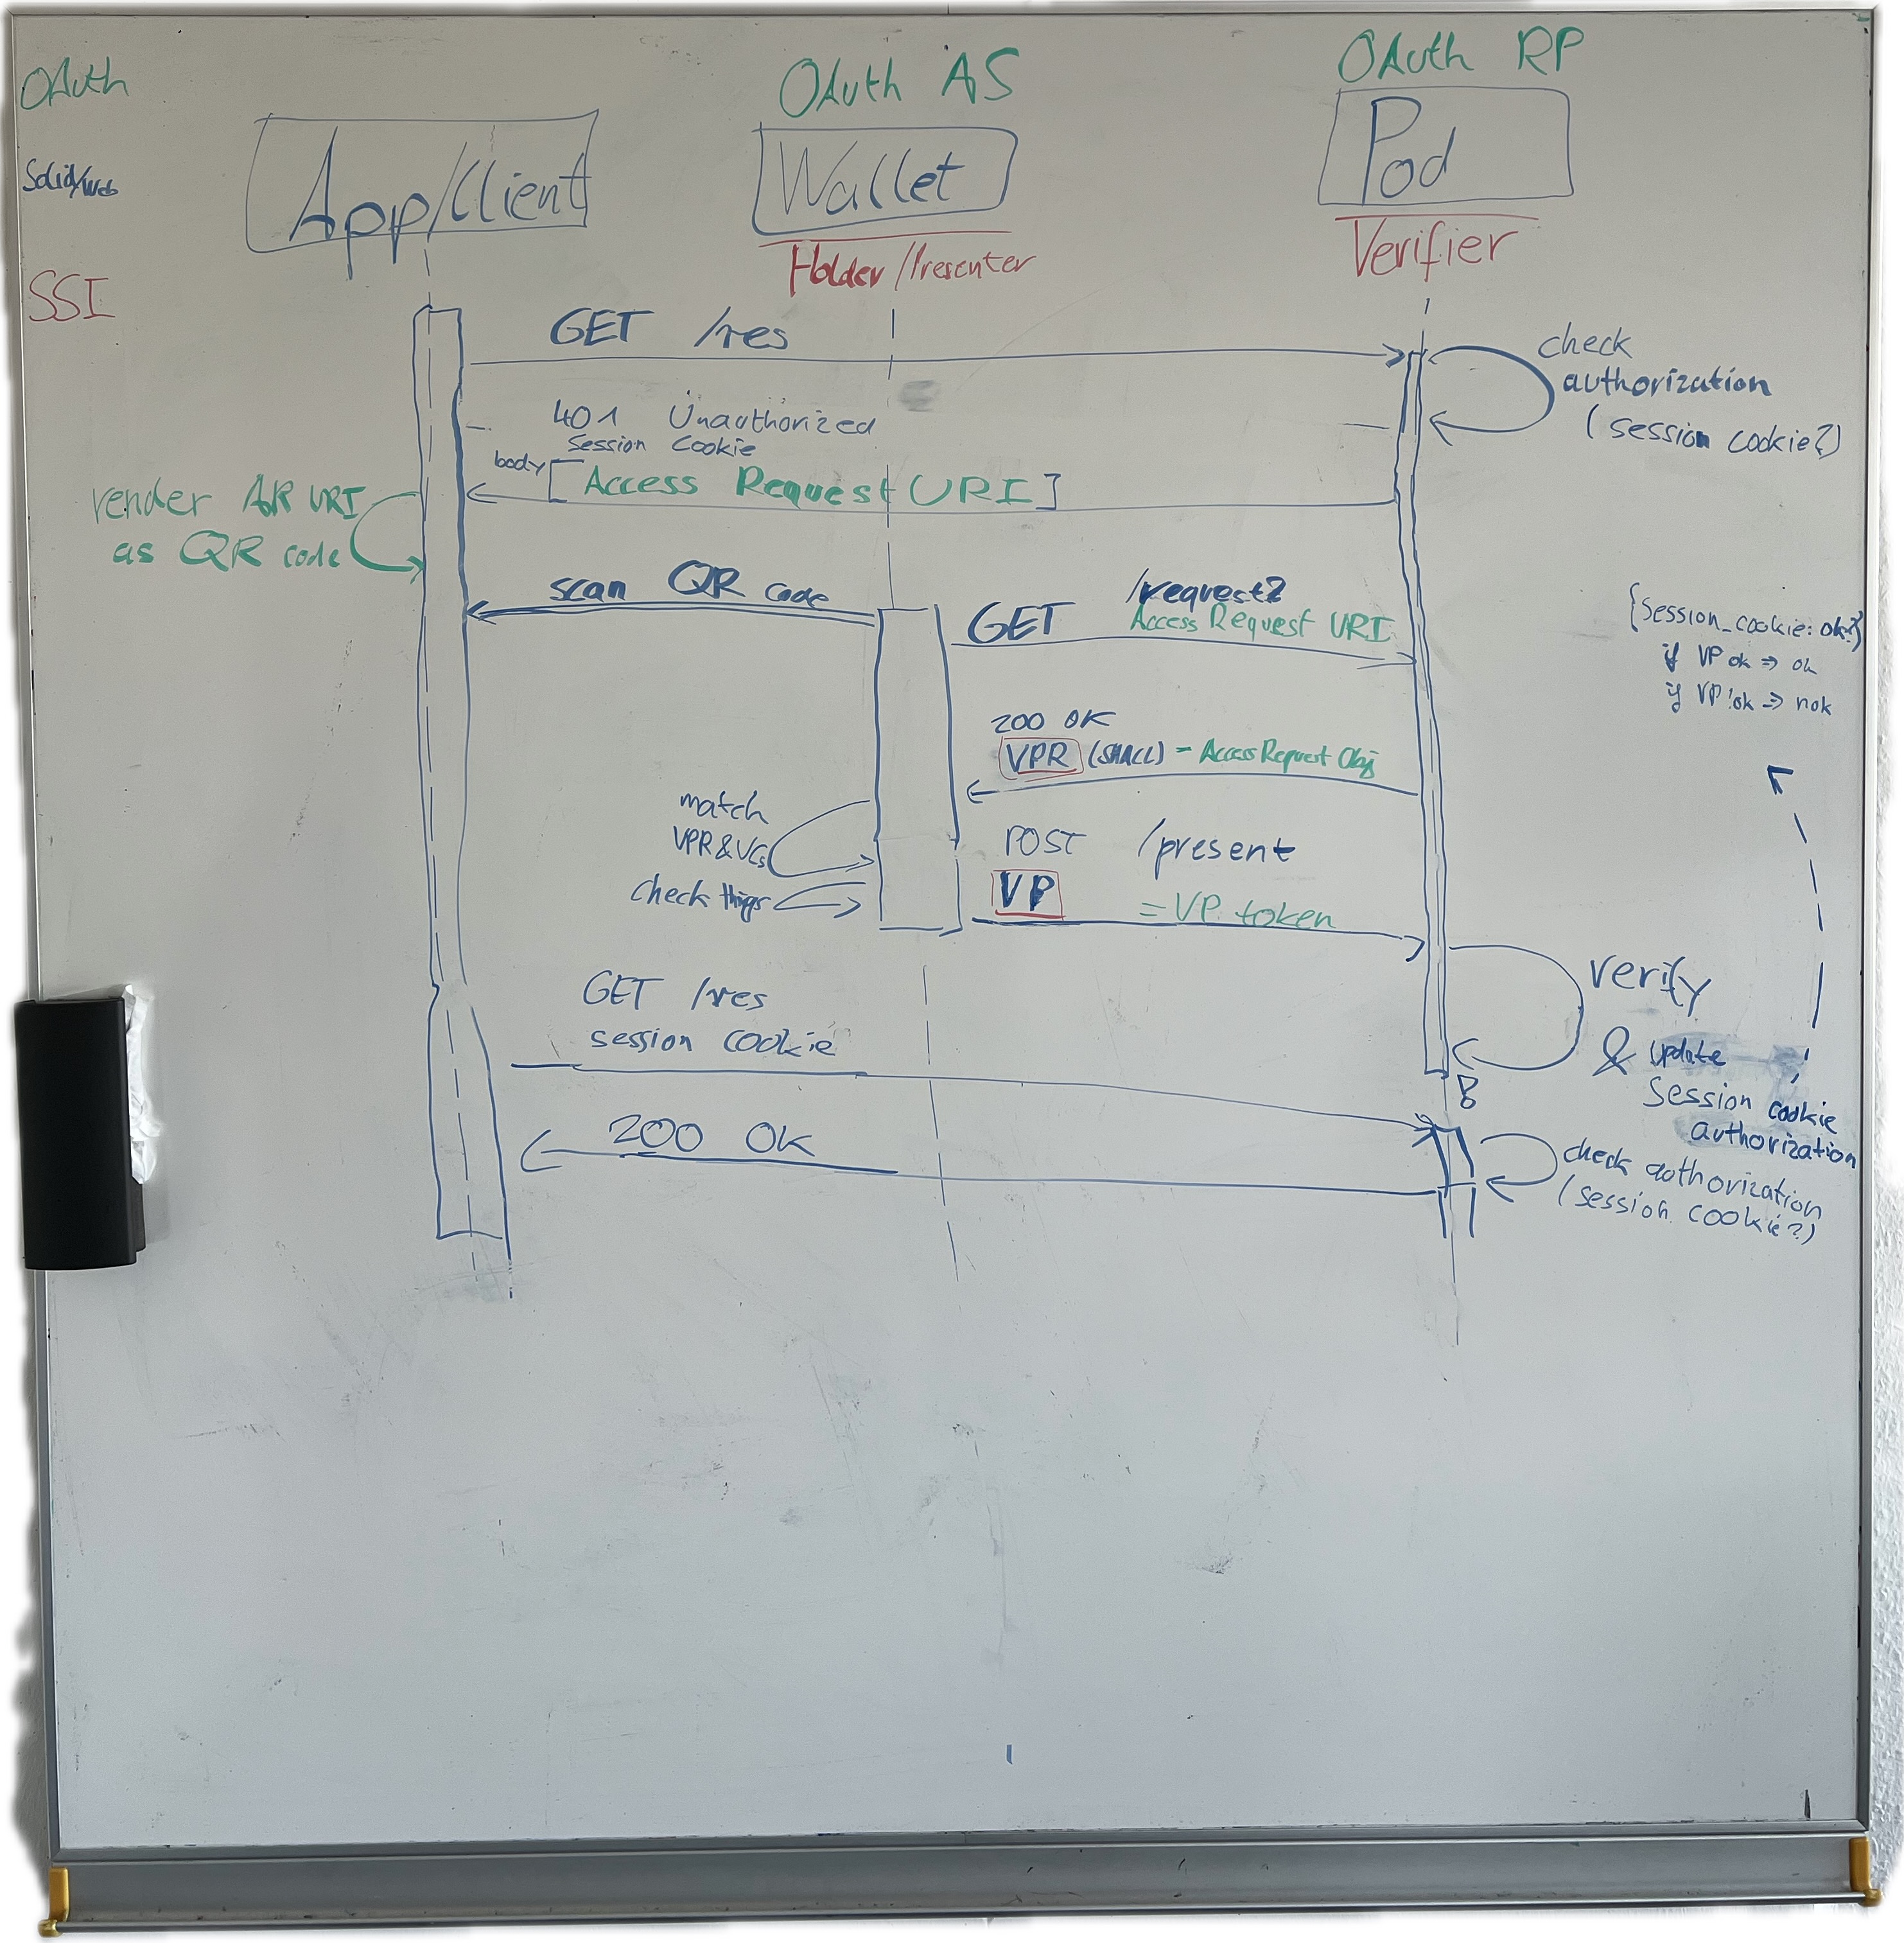 OAuth
OAuth AS
OAuth RP
Solid/Web
App/Client
Wallet
Pod
SSI
Holder/Presenter
Verifier
GET /res
check
authorization
(session cookie?)
401 Unauthorized
Session Cookie
body [Access Request URI]
render AR URI
as QR code
scan QR code
/request?
GET Access Request URI
{session_cookie: ok?}
if VP ok => ok
if VP !ok => nok
200 OK
VPR (SHACL) = Access Request Obj
match
VPR & VCs
check things
POST /present
VP = VP token
verify
& update
session cookie
authorization
GET /res
session cookie
200 OK
check authorization
(session cookie?)